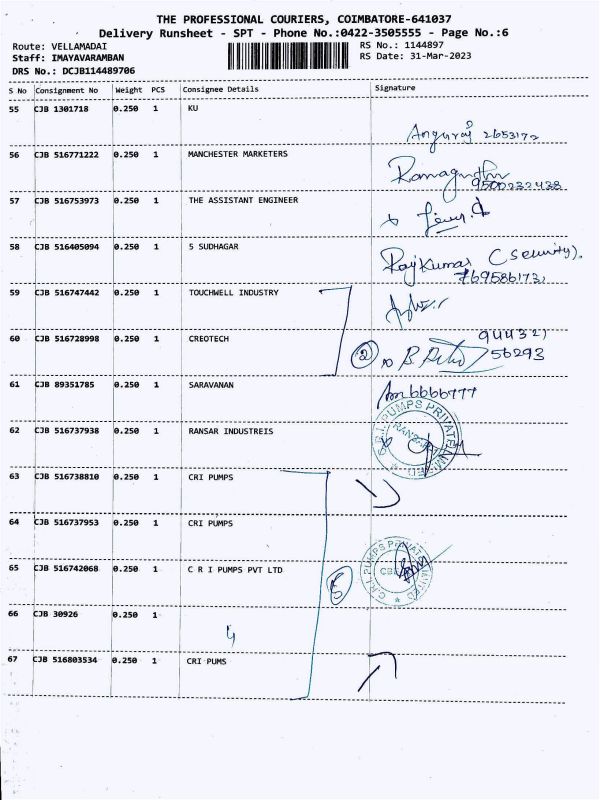 THE PROFESSIONAL COURIERS, COIMBATORE-641037
Delivery Runsheet - SPT - Phone No.:0422-3505555 - Page No.:6
Route: VELLAMADAI
Staff: IMAYAVARAMBAN
DRS No.: DCJB114489706
RS No.: 1144897
RS Date: 31-Mar-2023
S No Consignment No Weight PCS Consignee Details Signature
55 CJB 1301718 0.250 1 KU
Anguraj 2653172
56 CJB 516771222 0.250 1 MANCHESTER MARKETERS
9500232438
57 CJB 516753973 0.250 1 THE ASSISTANT ENGINEER
58 CJB 516405094 0.250 1 S SUDHAGAR
RajKumar (Security).
59 CJB 516747442 0.250 1 TOUCHWELL INDUSTRY
60 CJB 516728998 0.250 1 CREOTECH
2
944321
56293
61 CJB 89351785 0.250 1 SARAVANAN
6666777
62 CJB 516737938 0.250 1 RANSAR INDUSTREIS
C.R.I. PUMPS PRIVATE LIMITED
63 CJB 516738810 0.250 1 CRI PUMPS
64 CJB 516737953 0.250 1 CRI PUMPS
65 CJB 516742068 0.250 1 C R I PUMPS PVT LTD
5
C.R.I. PUMPS PRIVATE LIMITED
66 CJB 30926 0.250 1
4
67 CJB 516803534 0.250 1 CRI PUMS